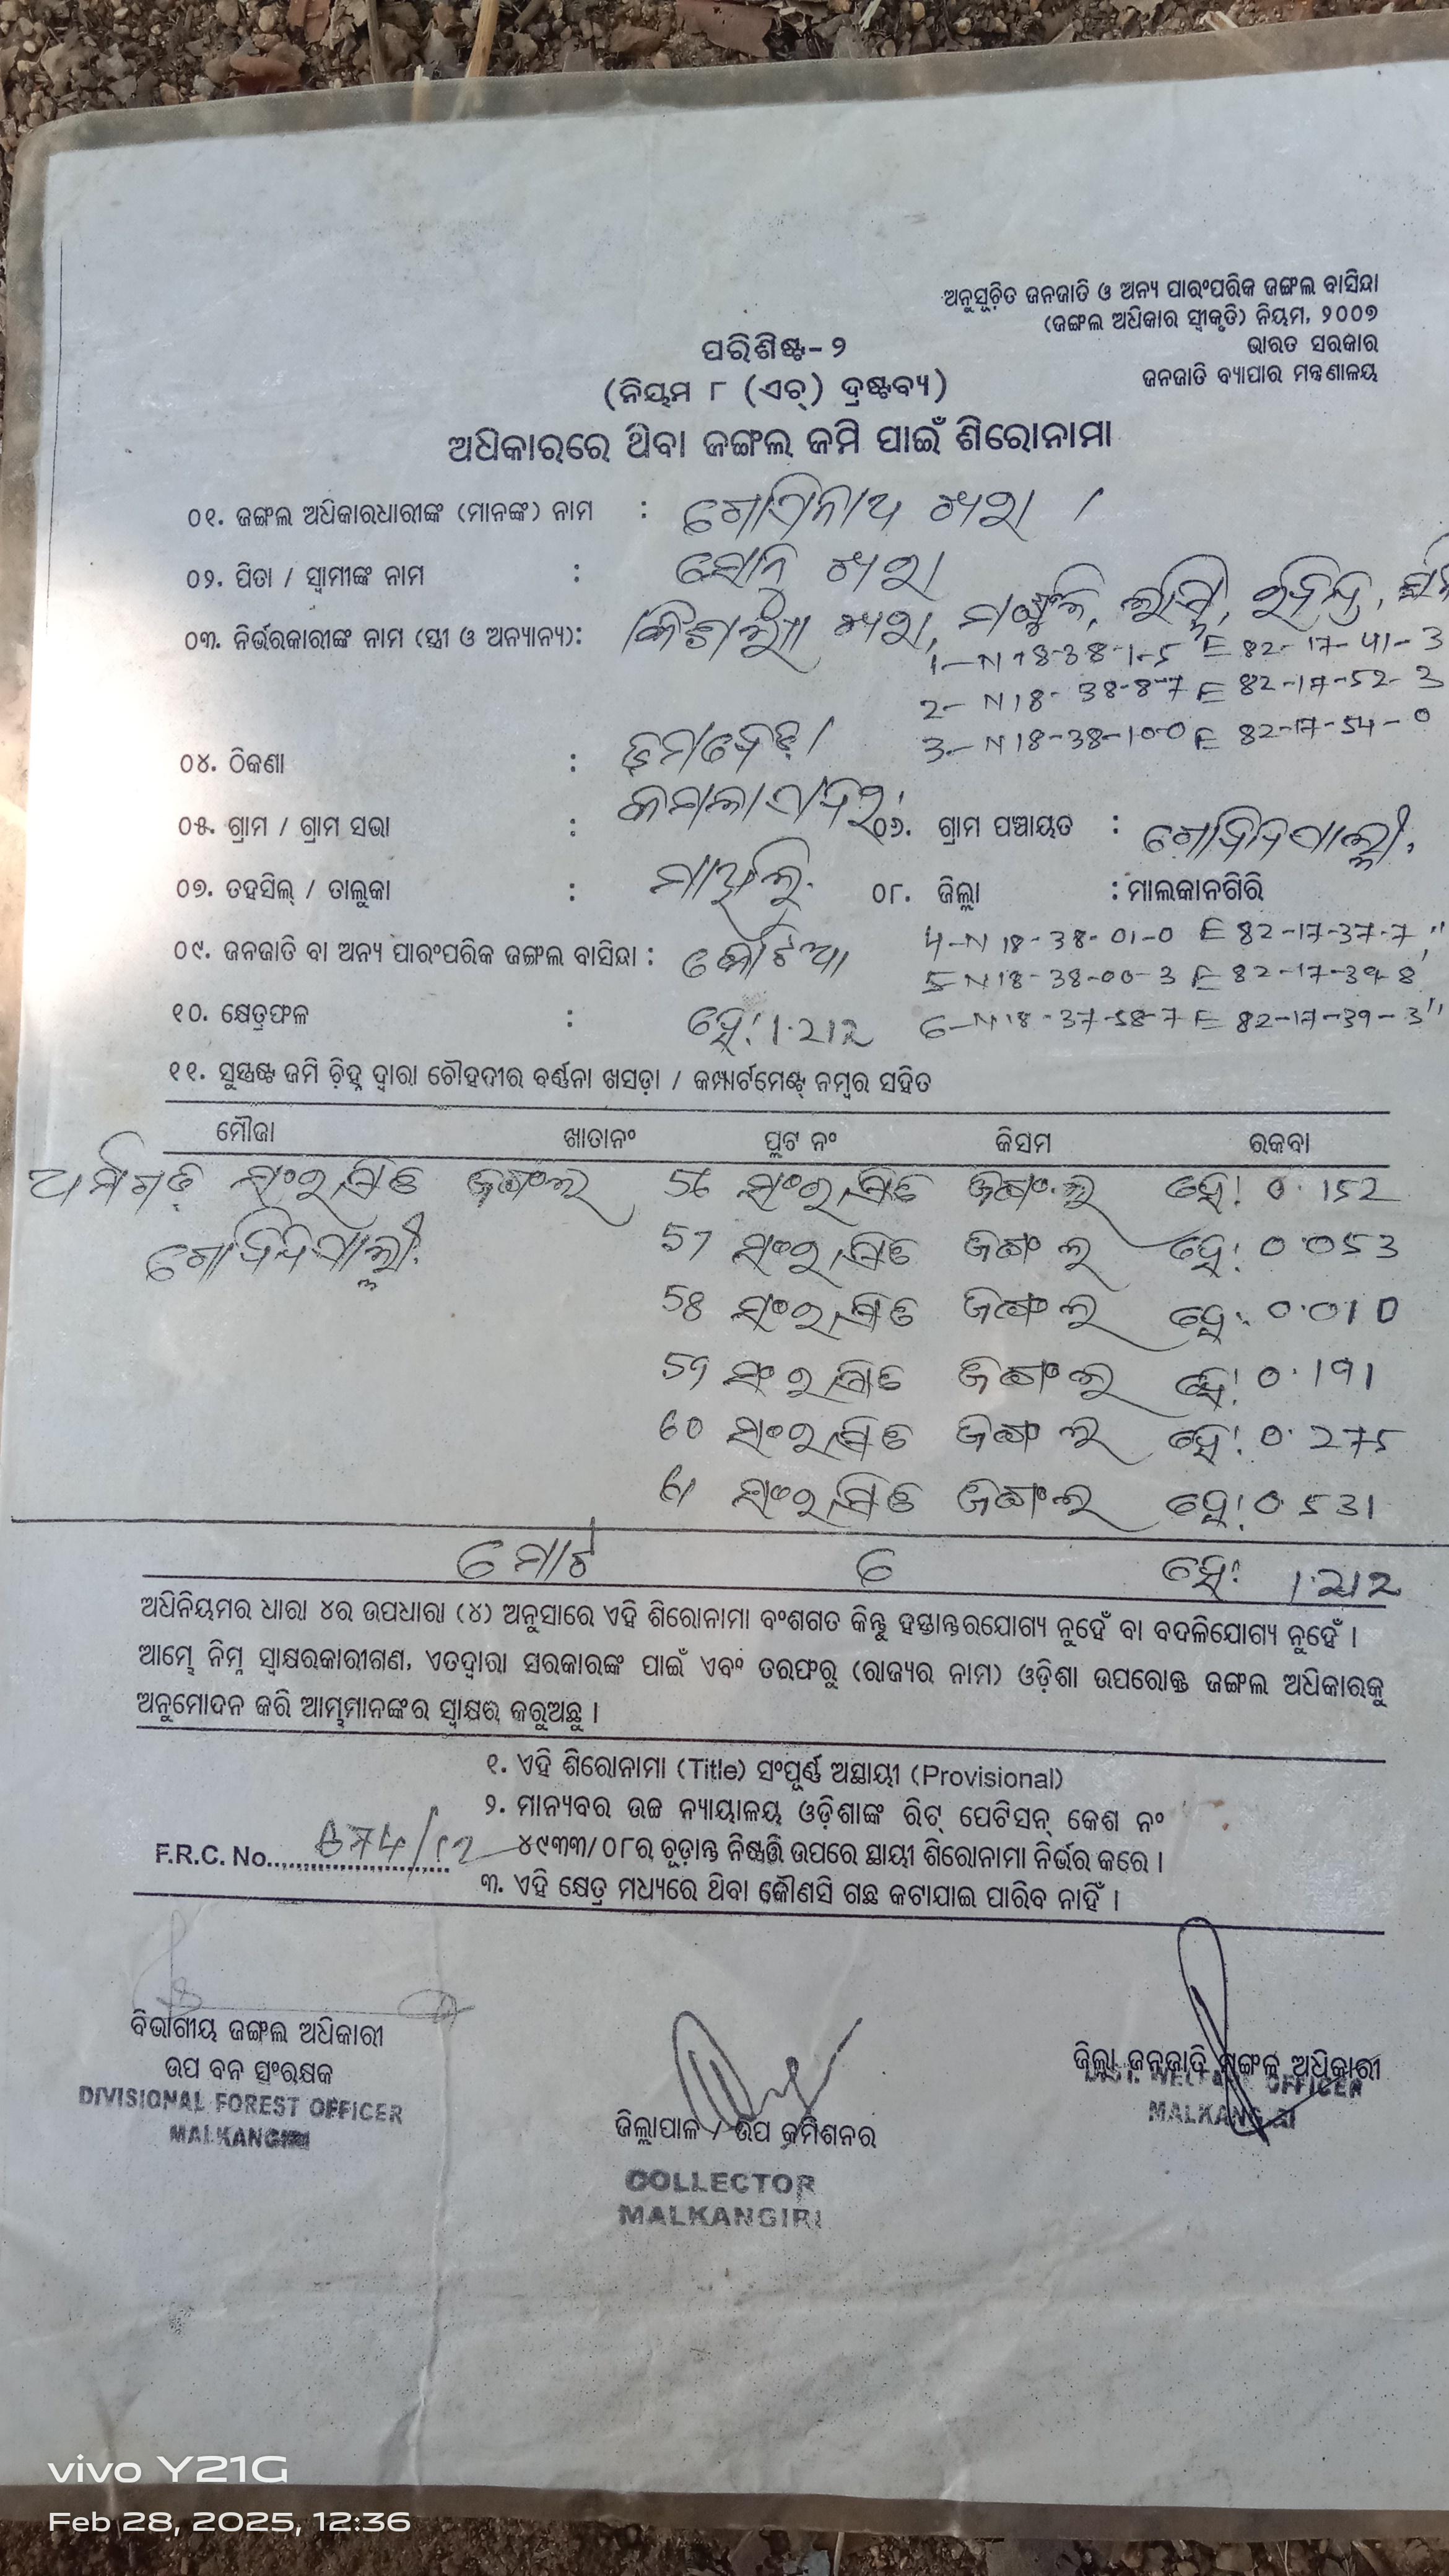 ଅନୁସୂଚିତ ଜନଜାତି ଓ ଅନ୍ୟ ପାରଂପରିକ ଜଙ୍ଗଲ ବାସିନ୍ଦା
(ଜଙ୍ଗଲ ଅଧିକାର ସ୍ୱୀକୃତି) ନିୟମ, ୨୦୦୭
ଭାରତ ସରକାର
ଜନଜାତି ବ୍ୟାପାର ମନ୍ତ୍ରଣାଳୟ
ପରିଶିଷ୍ଟ-୨
(ନିୟମ ୮ (ଏଚ୍) ଦ୍ରଷ୍ଟବ୍ୟ)
ଅଧିକାରରେ ଥିବା ଜଙ୍ଗଲ ଜମି ପାଇଁ ଶିରୋନାମା
୦୧. ଜଙ୍ଗଲ ଅଧିକାରଧାରୀଙ୍କ (ମାନଙ୍କ) ନାମ :
୦୨. ପିତା / ସ୍ୱାମୀଙ୍କ ନାମ :
୦୩. ନିର୍ଭରକାରୀଙ୍କ ନାମ (ସ୍ତ୍ରୀ ଓ ଅନ୍ୟାନ୍ୟ):
1-N 18-38-1-5 E 82-17-41-3
2- N 18-38-8-7 E 82-17-52-3
3- N 18-38-10-0 E 82-17-54-0
୦୪. ଠିକଣା :
୦୫. ଗ୍ରାମ / ଗ୍ରାମ ସଭା : ୦୬. ଗ୍ରାମ ପଞ୍ଚାୟତ : ଗୋବିନ୍ଦପାଲ୍ଲୀ
୦୭. ତହସିଲ୍ / ତାଲୁକା : ମାଥିଲି ୦୮. ଜିଲ୍ଲା : ମାଲକାନଗିରି
୦୯. ଜନଜାତି ବା ଅନ୍ୟ ପାରଂପରିକ ଜଙ୍ଗଲ ବାସିନ୍ଦା : 4-N 18-38-01-0 E 82-17-37-7"
5-N 18-38-00-3 E 82-17-39-8
୧୦. କ୍ଷେତ୍ରଫଳ : ହେ: 1.212 6-N 18-37-58-7 E 82-17-39-3"
୧୧. ସୁସ୍ପଷ୍ଟ ଜମି ଚିହ୍ନ ଦ୍ୱାରା ଚୌହଦୀର ବର୍ଣ୍ଣନା ଖସଡ଼ା / କମ୍ପାର୍ଟମେଣ୍ଟ୍ ନମ୍ବର ସହିତ
ମୌଜା ଖାତାନଂ ପ୍ଲଟ ନଂ କିସମ ରକବା
ସଂରକ୍ଷିତ ଜଙ୍ଗଲ 56 ସଂରକ୍ଷିତ ଜଙ୍ଗଲ ହେ: 0.152
ଗୋବିନ୍ଦପାଲ୍ଲୀ 57 ସଂରକ୍ଷିତ ଜଙ୍ଗଲ ହେ: 0.053
58 ସଂରକ୍ଷିତ ଜଙ୍ଗଲ ହେ: 0.010
59 ସଂରକ୍ଷିତ ଜଙ୍ଗଲ ହେ: 0.191
60 ସଂରକ୍ଷିତ ଜଙ୍ଗଲ ହେ: 0.275
61 ସଂରକ୍ଷିତ ଜଙ୍ଗଲ ହେ: 0.531
ମୋଟ 6 ହେ: 1.212
ଅଧିନିୟମର ଧାରା ୪ର ଉପଧାରା (୪) ଅନୁସାରେ ଏହି ଶିରୋନାମା ବଂଶଗତ କିନ୍ତୁ ହସ୍ତାନ୍ତରଯୋଗ୍ୟ ନୁହେଁ ବା ବଦଳିଯୋଗ୍ୟ ନୁହେଁ ।
ଆମ୍ଭେ ନିମ୍ନ ସ୍ୱାକ୍ଷରକାରୀଗଣ, ଏତଦ୍ୱାରା ସରକାରଙ୍କ ପାଇଁ ଏବଂ ତରଫରୁ (ରାଜ୍ୟର ନାମ) ଓଡ଼ିଶା ଉପରୋକ୍ତ ଜଙ୍ଗଲ ଅଧିକାରକୁ
ଅନୁମୋଦନ କରି ଆମ୍ଭମାନଙ୍କର ସ୍ୱାକ୍ଷର କରୁଅଛୁ ।
୧. ଏହି ଶିରୋନାମା (Title) ସଂପୂର୍ଣ୍ଣ ଅସ୍ଥାୟୀ (Provisional)
୨. ମାନ୍ୟବର ଉଚ୍ଚ ନ୍ୟାୟାଳୟ ଓଡ଼ିଶାଙ୍କ ରିଟ୍ ପେଟିସନ୍ କେଶ ନଂ
F.R.C. No. ୪୯୩୩/୦୮ର ଚୂଡ଼ାନ୍ତ ନିଷ୍ପତ୍ତି ଉପରେ ସ୍ଥାୟୀ ଶିରୋନାମା ନିର୍ଭର କରେ ।
୩. ଏହି କ୍ଷେତ୍ର ମଧ୍ୟରେ ଥିବା କୌଣସି ଗଛ କଟାଯାଇ ପାରିବ ନାହିଁ ।
ବିଭାଗୀୟ ଜଙ୍ଗଲ ଅଧିକାରୀ
ଉପ ବନ ସଂରକ୍ଷକ
DIVISIONAL FOREST OFFICER
MALKANGIRI
ଜିଲ୍ଲାପାଳ / ଉପ କମିଶନର
COLLECTOR
MALKANGIRI
ଜିଲ୍ଲା ଜନଜାତି ମଙ୍ଗଳ ଅଧିକାରୀ
DIST. WELFARE OFFICER
MALKANGIRI
vivo Y21G
Feb 28, 2025, 12:36